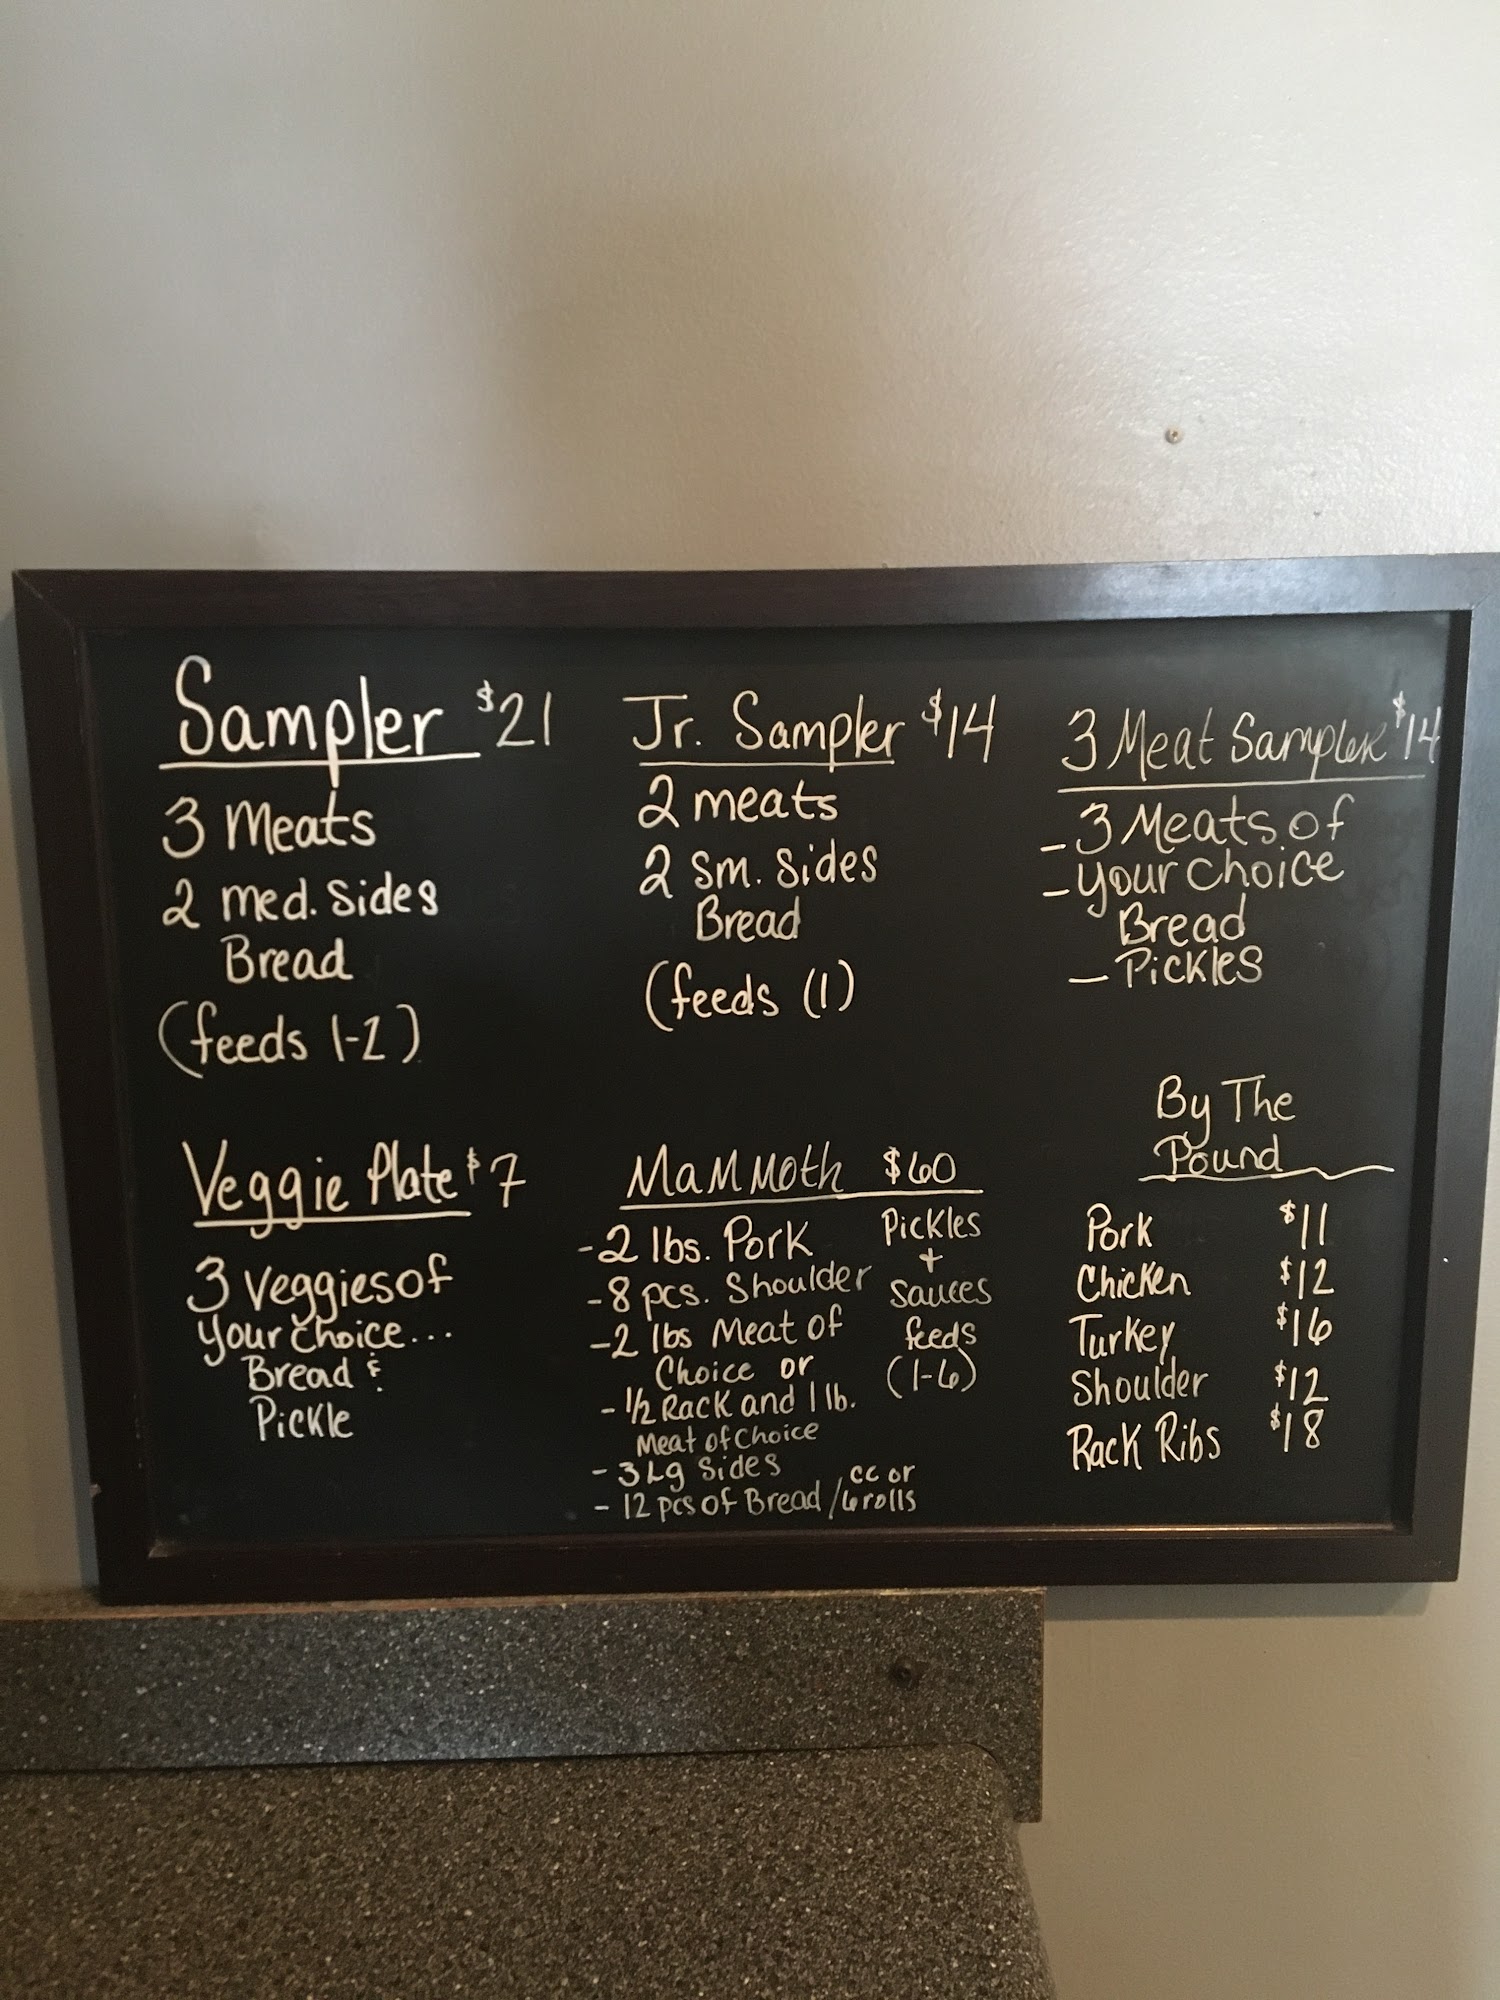 Sampler $21
3 Meats
2 med. Sides
Bread
(feeds 1-2)
Jr. Sampler $14
2 meats
2 sm. Sides
Bread
(feeds (1)
3 Meat Sampler $14
- 3 Meats of
- your choice
Bread
- Pickles
Veggie Plate $7
3 veggies of
your choice...
Bread &
Pickle
Mammoth $60
- 2 lbs. Pork
- 8 pcs. Shoulder
- 2 lbs Meat of
Choice or
- 1/2 Rack and 1 lb.
Meat of Choice
- 3 Lg Sides
- 12 pcs of Bread / cc or
6 rolls
Pickles
+
Sauces
feeds
(1-6)
By The
Pound
Pork $11
Chicken $12
Turkey $16
Shoulder $12
Rack Ribs $18